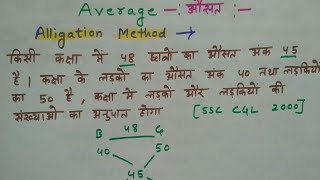 Average —: औसत :—
Alligation Method →
किसी कक्षा में 48 छात्रों का औसत अंक 45
है। कक्षा के लडकों का औसत अंक 40 तथा लडकियों
का 50 है, कक्षा में लडकों और लडकियों की
संख्याओ का अनुपात होगा [SSC CGL 2000]
B 48 G
40 50
45